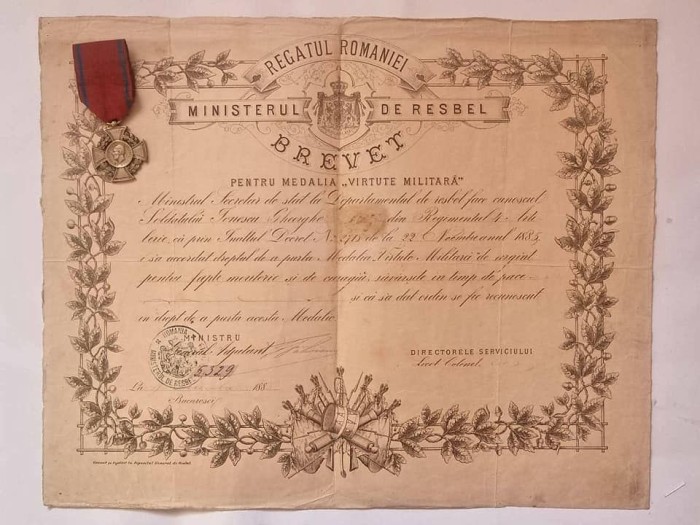 REGATUL ROMANIEI
MINISTERUL DE RESBEL
BREVET
PENTRU MEDALIA „VIRTUTE MILITARĂ”
Ministrul Secretar de stat la Departamentul de resbel face cunoscut
Soldatului Ionescu Gheorghe din Regimentul 4 Arti
lerie, că prin Inaltul Decret No de la 22 Noembrie anul 1885
s'a acordat dreptul de a purta Medalia Virtute Militară de argint
pentru fapte meritorie si de curagiu, săvârsite in timp de pace
si că s'a dat ordin se fie recunoscut
in drept de a purta acesta Medalie
MINISTRU
General Adjutant,
ROMANIA
MINISTERUL DE RESBEL
5329
DIRECTORELE SERVICIULUI
Locot Colonel,
188
Bucuresci